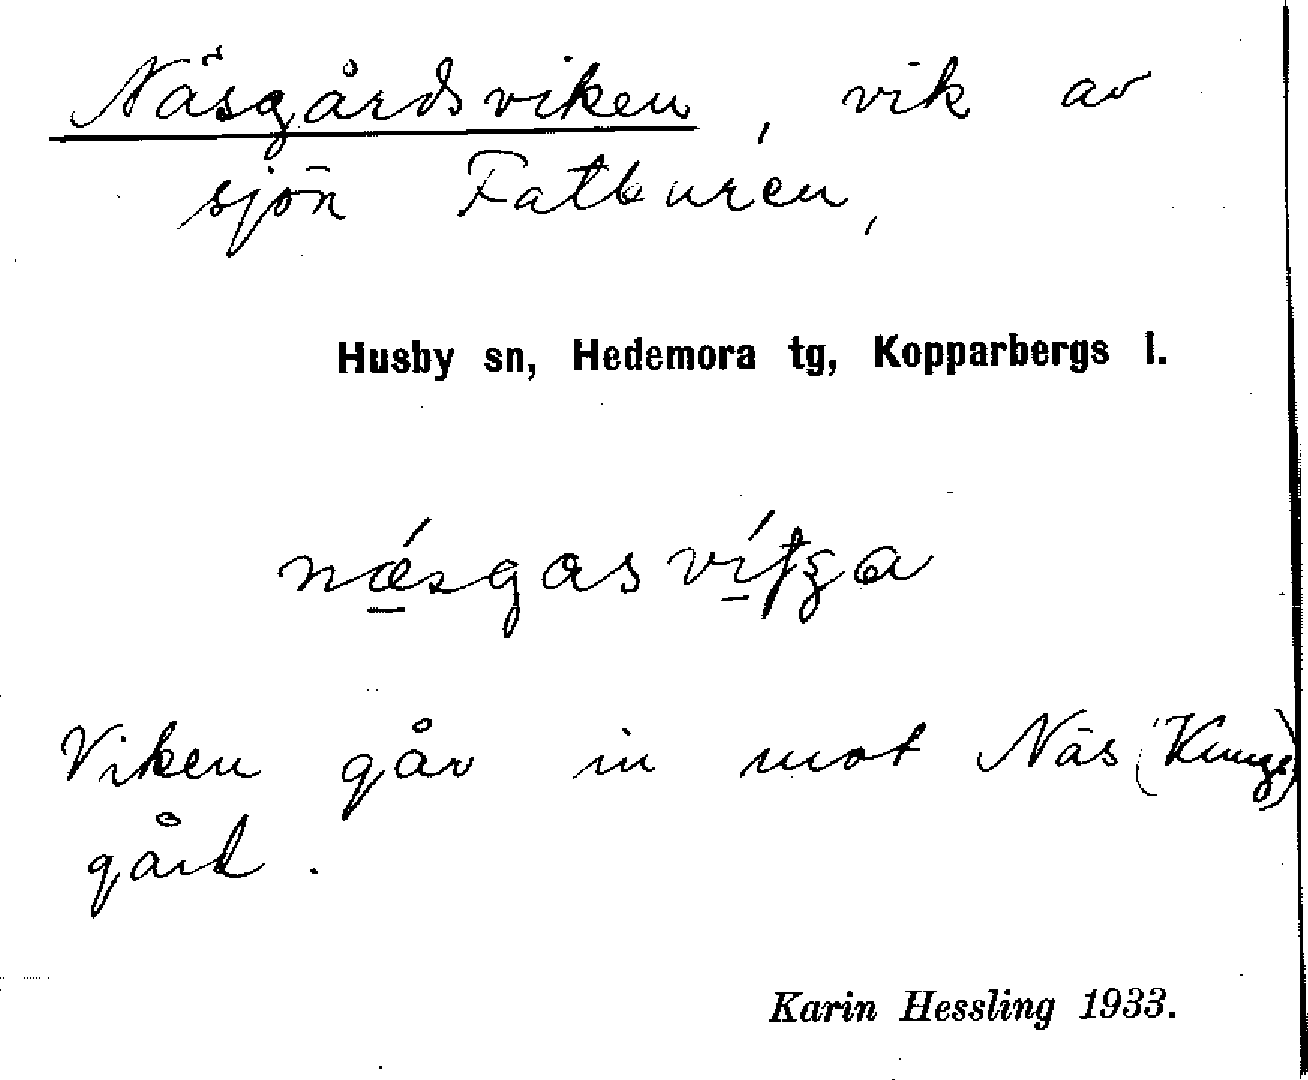 Näsgårdsviken, vik av
sjön Fatburen,
Husby sn, Hedemora tg, Kopparbergs l.
Viken går in mot Näs (Kungs)
gård.
Karin Hessling 1933.